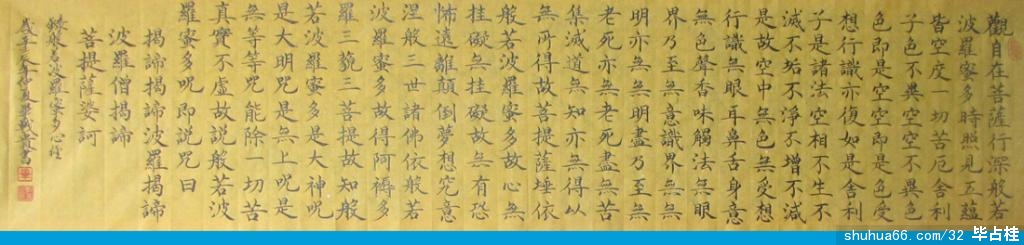 觀自在菩薩行深般若
波羅蜜多時照見五蘊
皆空度一切苦厄舍利
子色不異空空不異色
色即是空空即是色受
想行識亦復如是舍利
子是諸法空相不生不
滅不垢不淨不增不減
是故空中無色無受想
行識無眼耳鼻舌身意
無色聲香味觸法無眼
界乃至無意識界無無
明亦無無明盡乃至無
老死亦無老死盡無苦
集滅道無知亦無得以
無所得故菩提薩埵依
般若波羅蜜多故心無
挂礙無挂礙故無有恐
怖遠離顛倒夢想究意
涅般三世諸佛依般若
波羅蜜多故得阿褥多
羅三藐三菩提故知般
若波羅蜜多是大神咒
是大明咒是無上咒是
無等等咒能除一切苦
真實不虛故說般若波
羅蜜多呪即説咒曰
揭諦揭諦波羅揭諦
波羅僧揭諦
菩提薩婆訶
般若波羅蜜多心經
shuhua66.com/32 毕占桂